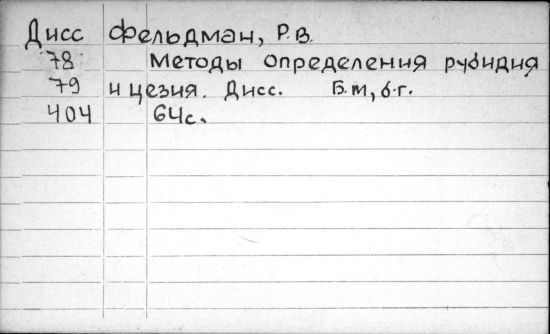 Дисс Фельдман, Р.В.
78 Методы определения рубидия
79 и цезия. Дисс. Б.м, б.г.
404 64с.